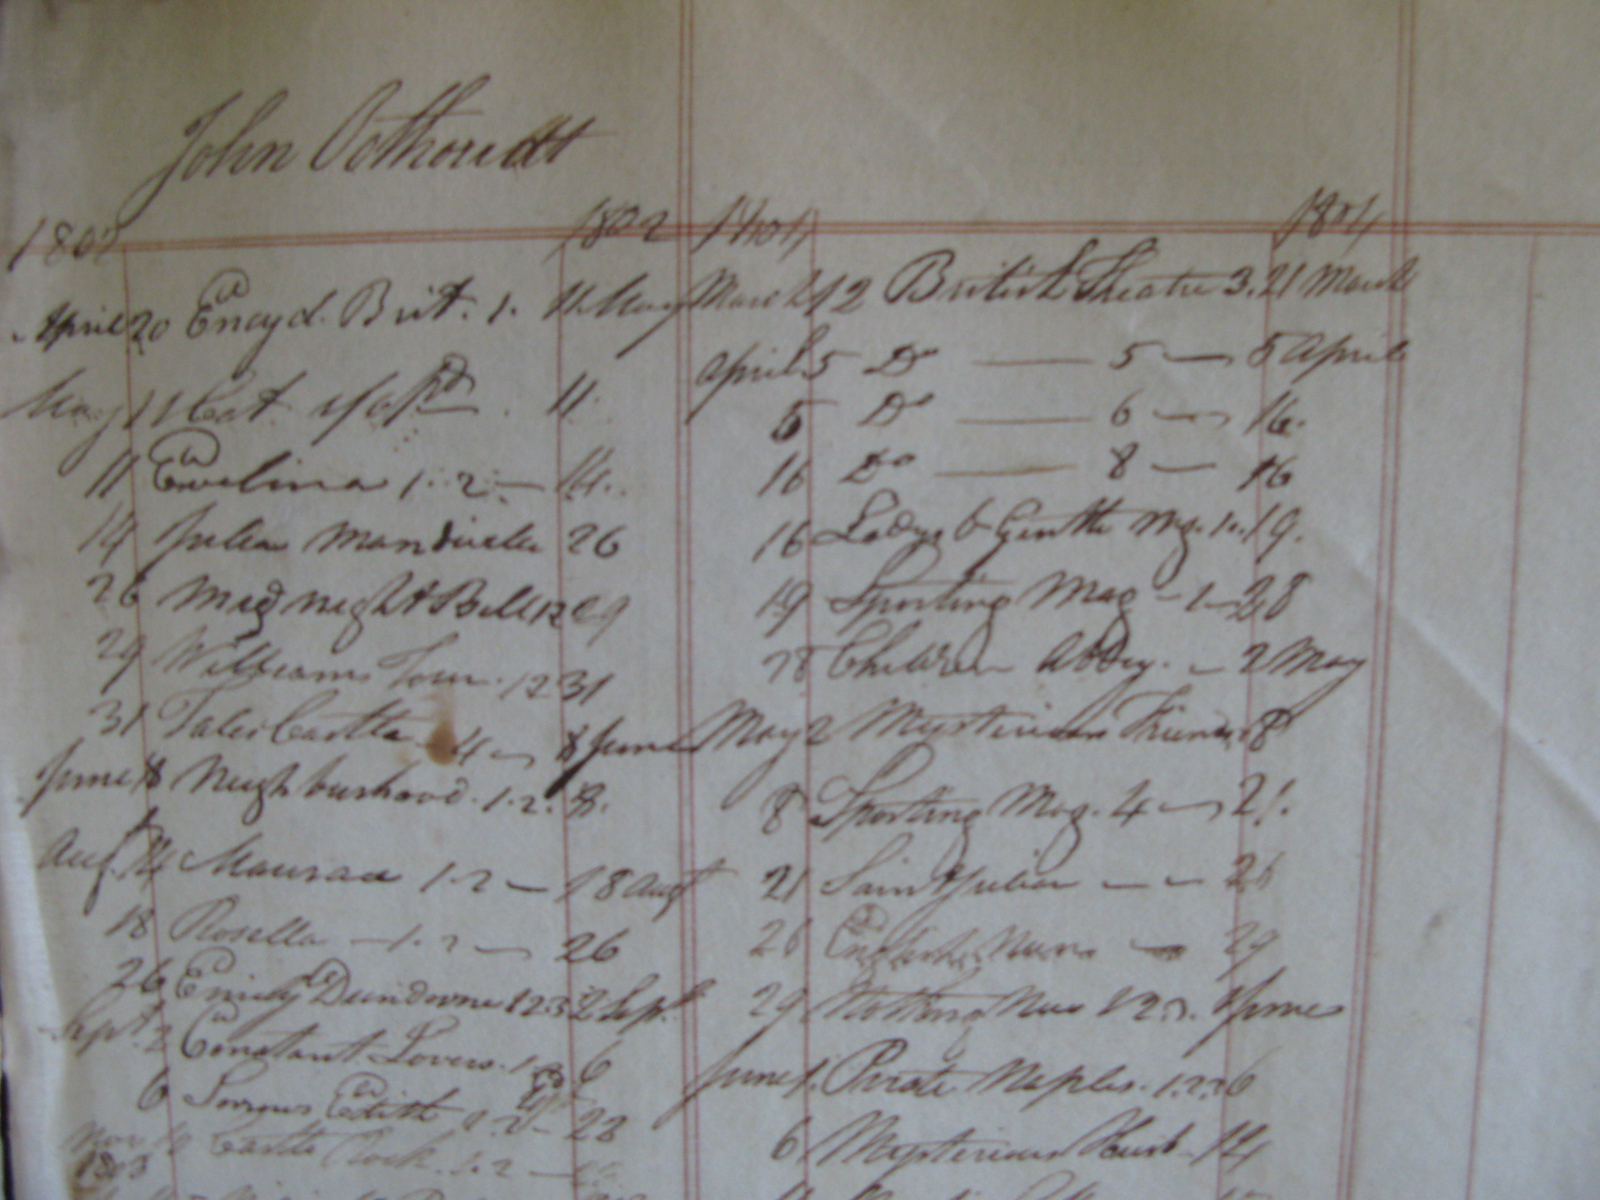 John Oothoudt
1802 1802
April 20 Encycl. Brit. 1. 11 May
May 11 Capt. 11.
11 Evelina 1.2 — 14.
14 Julia Mandivelle 26
26 Midnight Bell 12 29
29 Williams Tour. 12 31
31 Tales Castle 4 — 8 June
June 8 Neighbourhood. 1.2. 8.
Aug. 14 1.2 — 18 Augt
18 Rosella — 1.2 — 26
26 Emily Dundorne 123 2 Sept.
Sept. 2 Constant Lovers. 1 2 6
6 Sorrows Edith 1.2 — 28
Nov Castle Rock. 1.2 —
1803
1804 1804
March 12 British Theatre 3. 21 March
April 5 Do — 5 — 5 April
5 Do — 6 — 16.
16 Do — 8 — 16
16 Ladys & Gentle Mg. 1. 19.
19 Sporting Mag — 1 — 28
28 Children Abbey. — 2 May
May 2 Mysterious Friend 8
8 Sporting Mag. 4 — 21.
21 Saint Julian — — 26
26 English Nun — 29
29 Nothing New 1 2 3. 1 June
June 1. Pirate Naples. 1.2.3 6
6 Mysterious Husb. 14